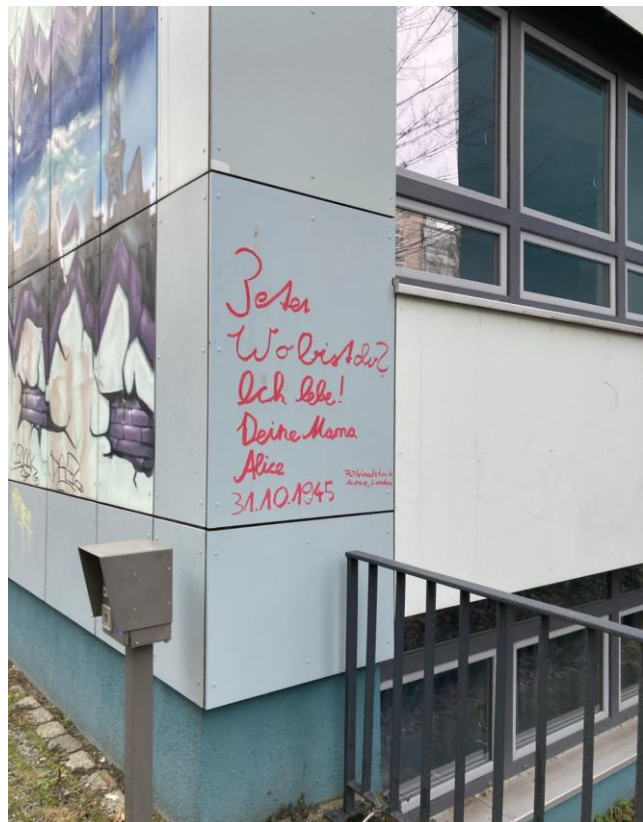 Peter
Wo bist du?
Ich lebe!
Deine Mama
Alice
31.10.1945
70 Woodstock
Avenue, London